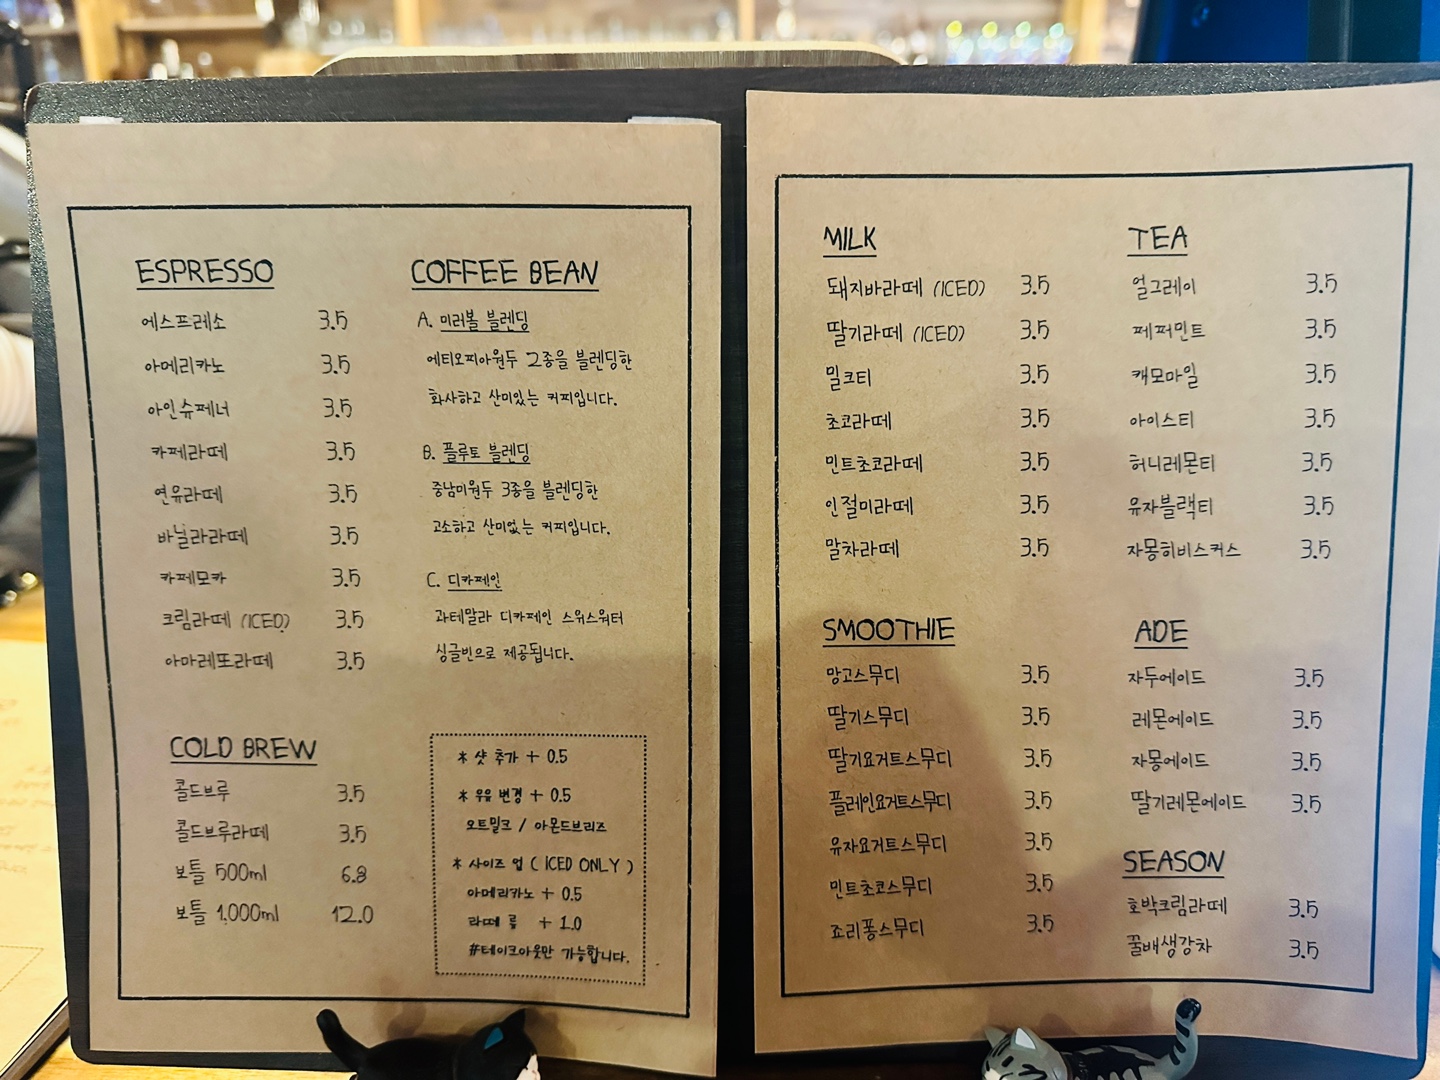 ESPRESSO
에스프레소 3.5
아메리카노 3.5
아인슈페너 3.5
카페라떼 3.5
연유라떼 3.5
바닐라라떼 3.5
카페모카 3.5
크림라떼 (ICED) 3.5
아마레또라떼 3.5
COLD BREW
콜드브루 3.5
콜드브루라떼 3.5
보틀 500ml 6.8
보틀 1,000ml 12.0
COFFEE BEAN
A. 미러볼 블렌딩
에티오피아원두 2종을 블렌딩한
화사하고 산미있는 커피입니다.
B. 플루토 블렌딩
중남미원두 3종을 블렌딩한
고소하고 산미없는 커피입니다.
C. 디카페인
과테말라 디카페인 스위스워터
싱글빈으로 제공됩니다.
* 샷 추가 + 0.5
* 우유 변경 + 0.5
오트밀크 / 아몬드브리즈
* 사이즈 업 ( ICED ONLY )
아메리카노 + 0.5
라떼 류 + 1.0
#테이크아웃만 가능합니다.
MILK
돼지바라떼 (ICED) 3.5
딸기라떼 (ICED) 3.5
밀크티 3.5
초코라떼 3.5
민트초코라떼 3.5
인절미라떼 3.5
말차라떼 3.5
SMOOTHIE
망고스무디 3.5
딸기스무디 3.5
딸기요거트스무디 3.5
플레인요거트스무디 3.5
유자요거트스무디 3.5
민트초코스무디 3.5
죠리퐁스무디 3.5
TEA
얼그레이 3.5
페퍼민트 3.5
캐모마일 3.5
아이스티 3.5
허니레몬티 3.5
유자블랙티 3.5
자몽히비스커스 3.5
ADE
자두에이드 3.5
레몬에이드 3.5
자몽에이드 3.5
딸기레몬에이드 3.5
SEASON
호박크림라떼 3.5
꿀배생강차 3.5